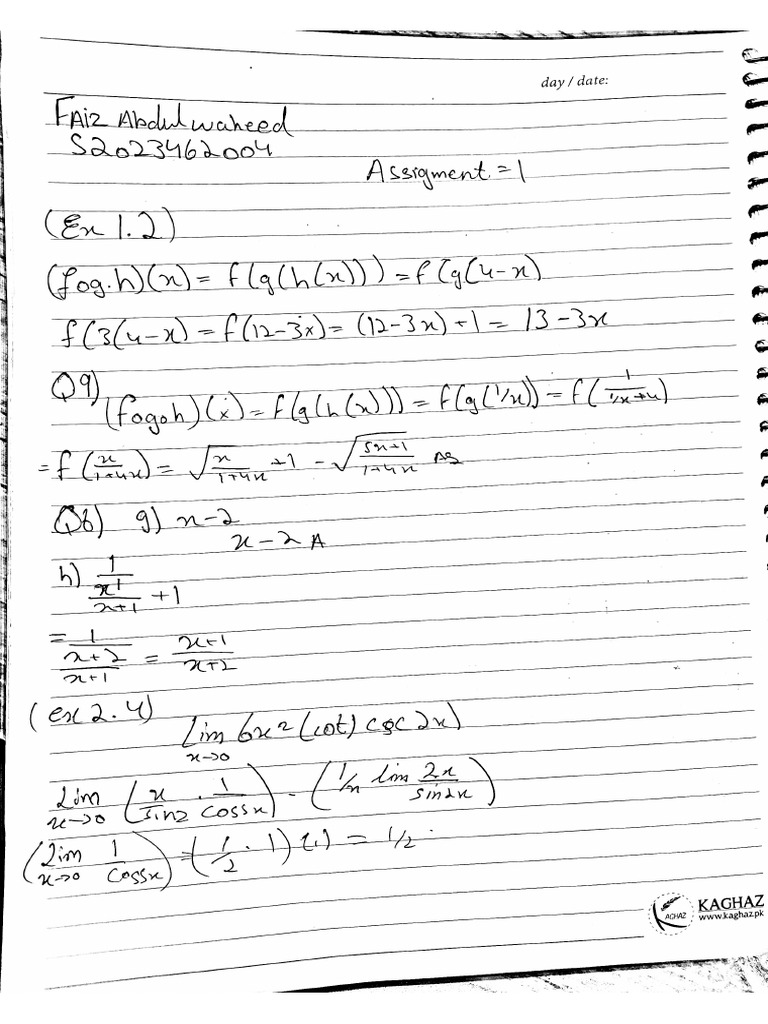 day / date:
FAiz Abdul waheed
S2023462004
Assigment = 1
(Ex 1.2)
(fog.h)(x) = f(g(h(x))) = f(g(4-x)
f(3(4-x) = f(12-3x) = (12-3x)+1 = 13-3x
Q9)
(fogoh)(x) = f(g(h(x))) = f(g(1/x)) = f(1/(1/x+4))
= f(x/(1+4x)) = √x/(1+4x) +1 - √(5x+1)/(1+4x) As
Q6) g) x-2
x-2 A
h) 1/(x1/(x+1) +1)
= 1/((x+2)/(x+1)) = (x+1)/(x+2)
(ex 2.4)
Lim x→0 6x² (cot) csc 2x)
Lim x→0 (x/sin2 · 1/cos5x) - (1/n lim 2x/sin2x)
(Lim x→0 1/cos5x) = (1/2 · 1)(1) = 1/2
KAGHAZ
www.kaghaz.pk